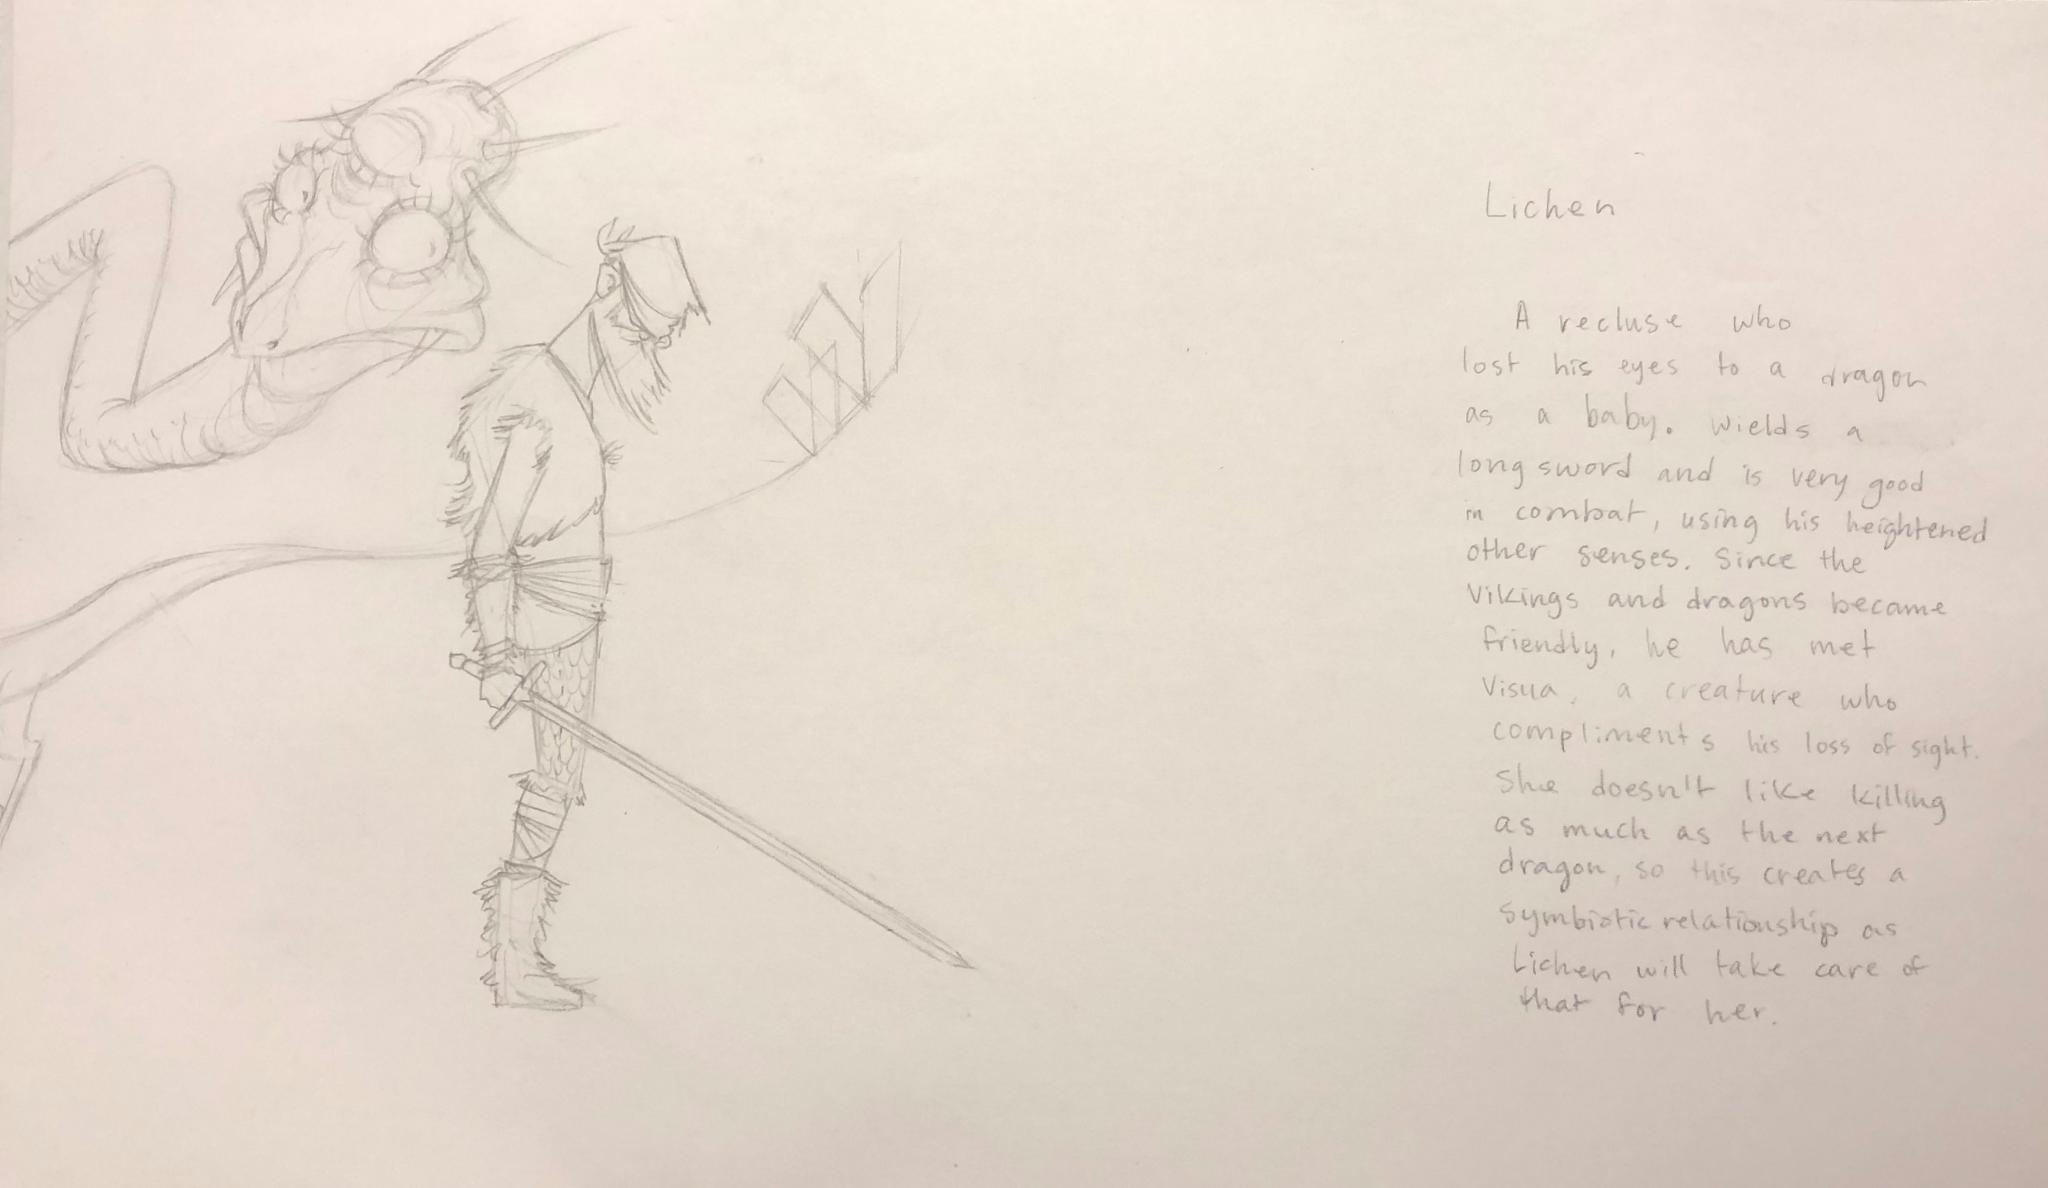 Lichen
A recluse who
lost his eyes to a dragon
as a baby. Wields a
long sword and is very good
in combat, using his heightened
other senses. Since the
Vikings and dragons became
friendly, he has met
Visua, a creature who
compliments his loss of sight.
She doesn't like killing
as much as the next
dragon, so this creates a
symbiotic relationship as
Lichen will take care of
that for her.